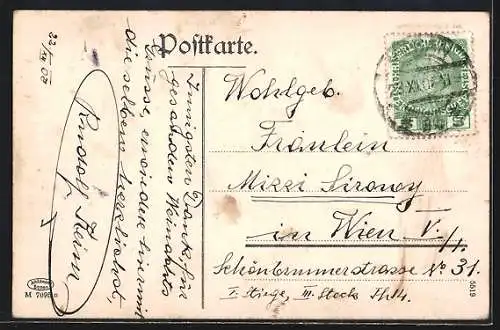 Postkarte.
22/XII 08
Innigsten Dank für
gesandten Weihnachts
Grüsse, erwidere hiermit
dieselben herzlichst,
Rudolf
Wohlgeb.
Fräulein
Mizzi Sirowy
in Wien V./1.
Schönbrunnerstrasse No 31.
I. Stiege, III. Stock Th 14.
M
5519